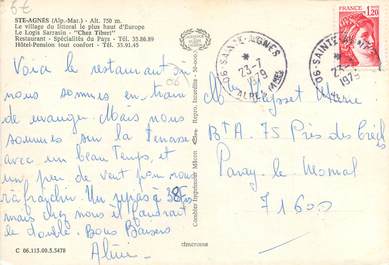 6€
STE-AGNÈS (Alp.-Mar.) - Alt. 750 m.
Le village du littoral le plus haut d'Europe
Le Logis Sarrasin - "Chez Tibert"
Restaurant - Spécialités du Pays - Tél. 35.86.89
Hôtel-Pension tout confort - Tél. 35.91.45
Voici le restaurant où
nous sommes en train
de manger. Mais nous
sommes sur la Terrasse
avec un beau Temps, et
un peu de vent pour nous
rafraîchir. Un repas à 38F
mais chez nous il faudrait
le double. Bons Baisers
C 06.115.00.5.5478
Combier Imprimeur Mâcon
06-SAINTE-AGNES
23-7
1979
ALPES MMES
06-SAINTE-
1979
1,20
Marie
BTA 75 Près des Creffs
Paray le Monial
71600